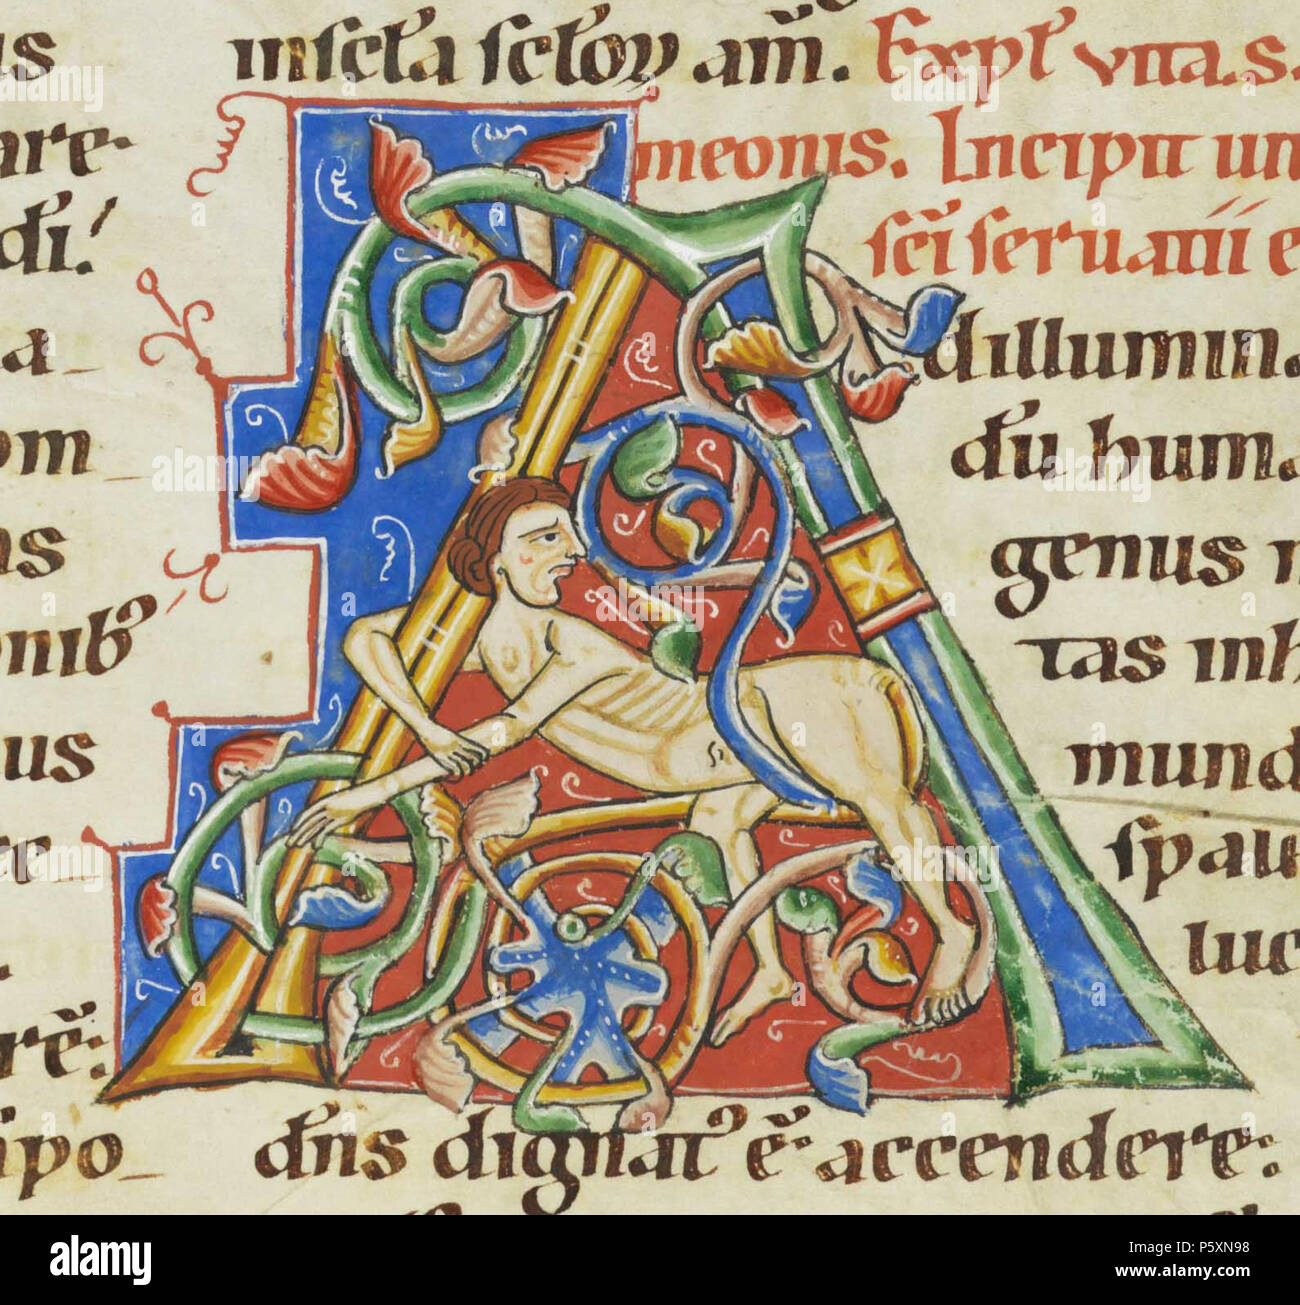 us
are.
di.
a
om
as
onib᷒
us
ipo
in scl̄a scl̄oꝝ am̄. Expl̄ vita. s.
meonis. Incipit un
sc̄i seruatii e
dillumin.
dū hum.
genus
tas inh
mund
spau
luc
dn̄s dignat᷒ ē. accendere:
alamy
Image ID: P5XN98
www.alamy.com